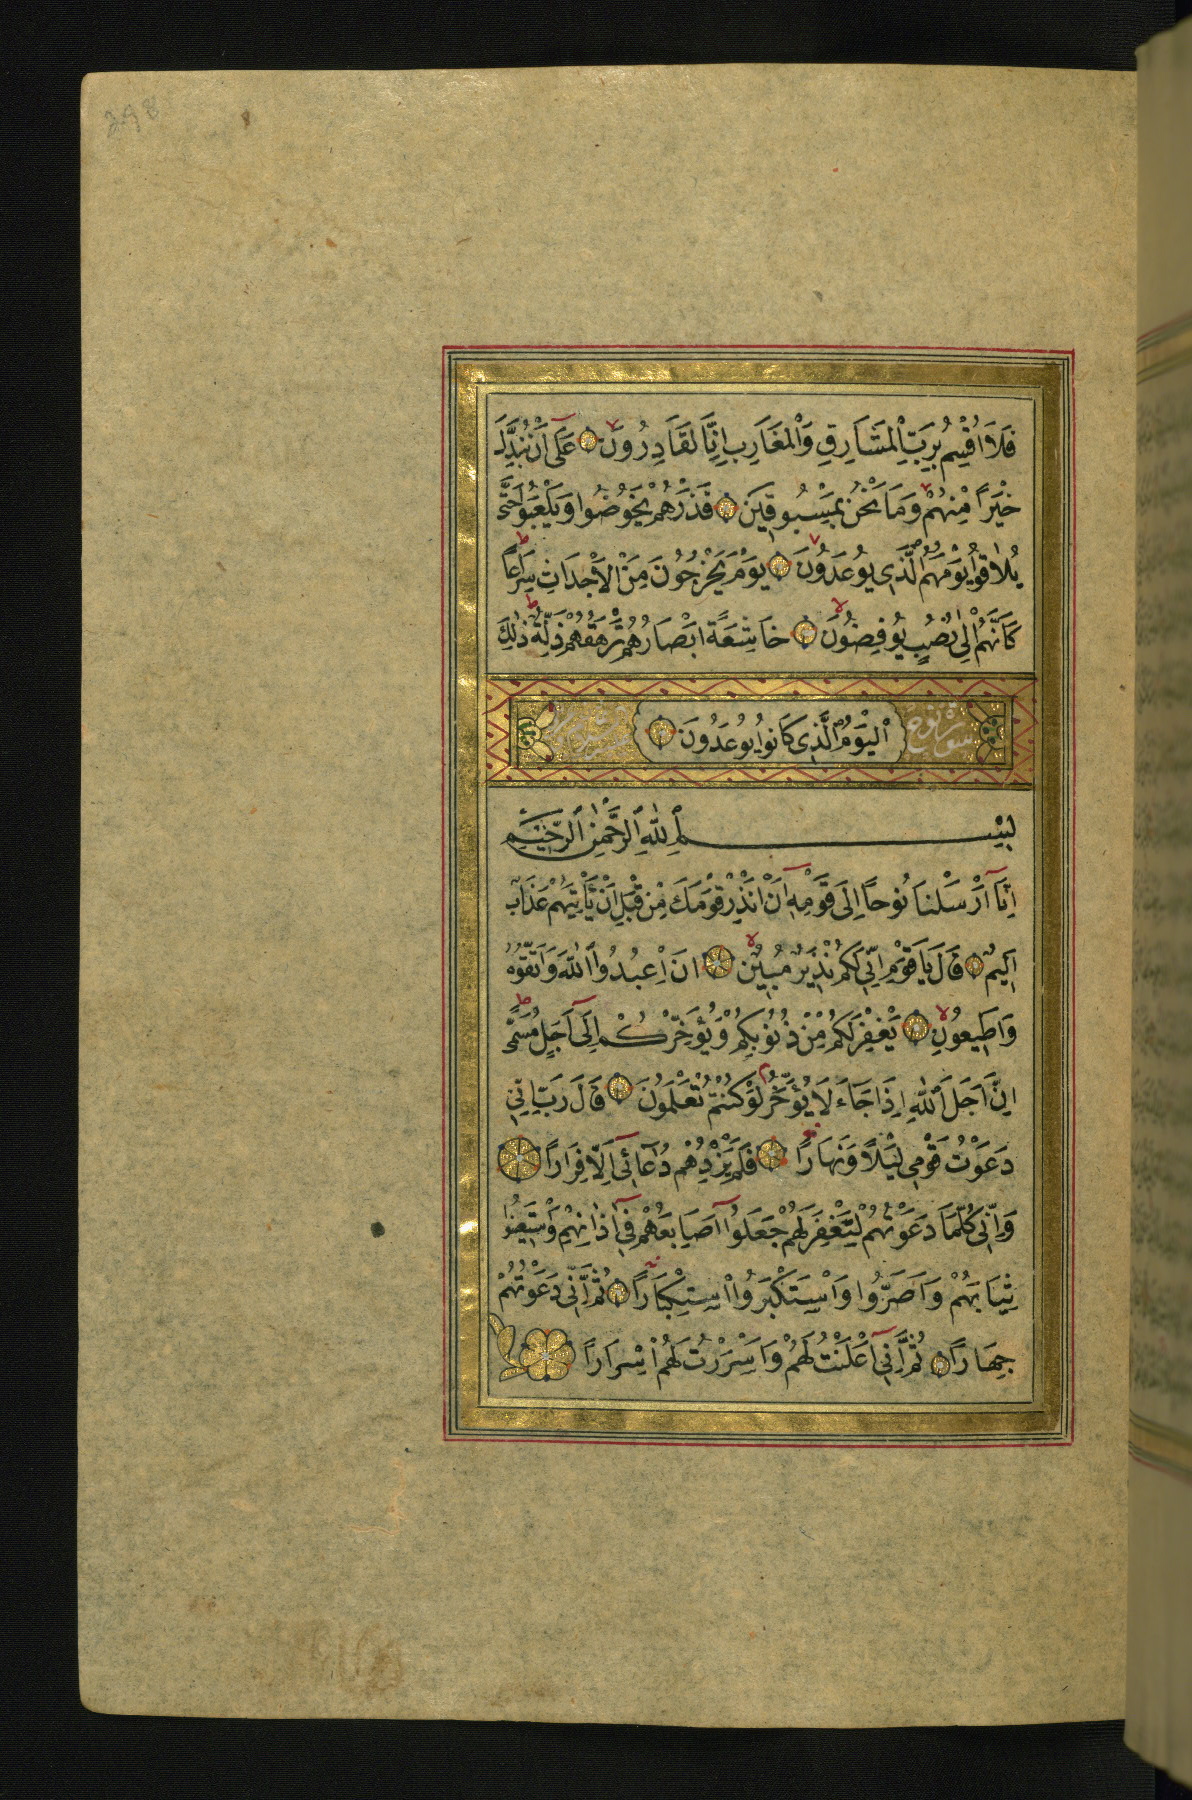 298
فَلَا اُقْسِمُ بِرَبِّ الْمَشَارِقِ وَالْمَغَارِبِ اِنَّا لَقَادِرُونَ عَلٰٓى اَنْ نُبَدِّلَ
خَيْرًا مِنْهُمْ وَمَا نَحْنُ بِمَسْبُوقِينَ فَذَرْهُمْ يَخُوضُوا وَيَلْعَبُوا حَتّٰى
يُلَاقُوا يَوْمَهُمُ الَّذِى يُوعَدُونَ يَوْمَ يَخْرُجُونَ مِنَ الْاَجْدَاثِ سِرَاعًا
كَاَنَّهُمْ اِلٰى نُصُبٍ يُوفِضُونَ خَاشِعَةً اَبْصَارُهُمْ تَرْهَقُهُمْ ذِلَّةٌ ذٰلِكَ
سورة نوح
الْيَوْمُ الَّذِى كَانُوا يُوعَدُونَ
بِسْمِ اللّٰهِ الرَّحْمٰنِ الرَّحِيمِ
اِنَّٓا اَرْسَلْنَا نُوحًا اِلٰى قَوْمِهٖٓ اَنْ اَنْذِرْ قَوْمَكَ مِنْ قَبْلِ اَنْ يَاْتِيَهُمْ عَذَابٌ
اَلِيمٌ قَالَ يَا قَوْمِ اِنِّى لَكُمْ نَذِيرٌ مُبِينٌ اَنِ اعْبُدُوا اللّٰهَ وَاتَّقُوهُ
وَاَطِيعُونِ يَغْفِرْ لَكُمْ مِنْ ذُنُوبِكُمْ وَيُؤَخِّرْكُمْ اِلٰٓى اَجَلٍ مُسَمًّى
اِنَّ اَجَلَ اللّٰهِ اِذَا جَاءَ لَا يُؤَخَّرُ لَوْ كُنْتُمْ تَعْلَمُونَ قَالَ رَبِّ اِنِّى
دَعَوْتُ قَوْمِى لَيْلًا وَنَهَارًا فَلَمْ يَزِدْهُمْ دُعَائِٓى اِلَّا فِرَارًا
وَاِنِّى كُلَّمَا دَعَوْتُهُمْ لِتَغْفِرَ لَهُمْ جَعَلُٓوا اَصَابِعَهُمْ فِٓى اٰذَانِهِمْ وَاسْتَغْشَوْا
ثِيَابَهُمْ وَاَصَرُّوا وَاسْتَكْبَرُوا اسْتِكْبَارًا ثُمَّ اِنِّى دَعَوْتُهُمْ
جِهَارًا ثُمَّ اِنِّٓى اَعْلَنْتُ لَهُمْ وَاَسْرَرْتُ لَهُمْ اِسْرَارًا